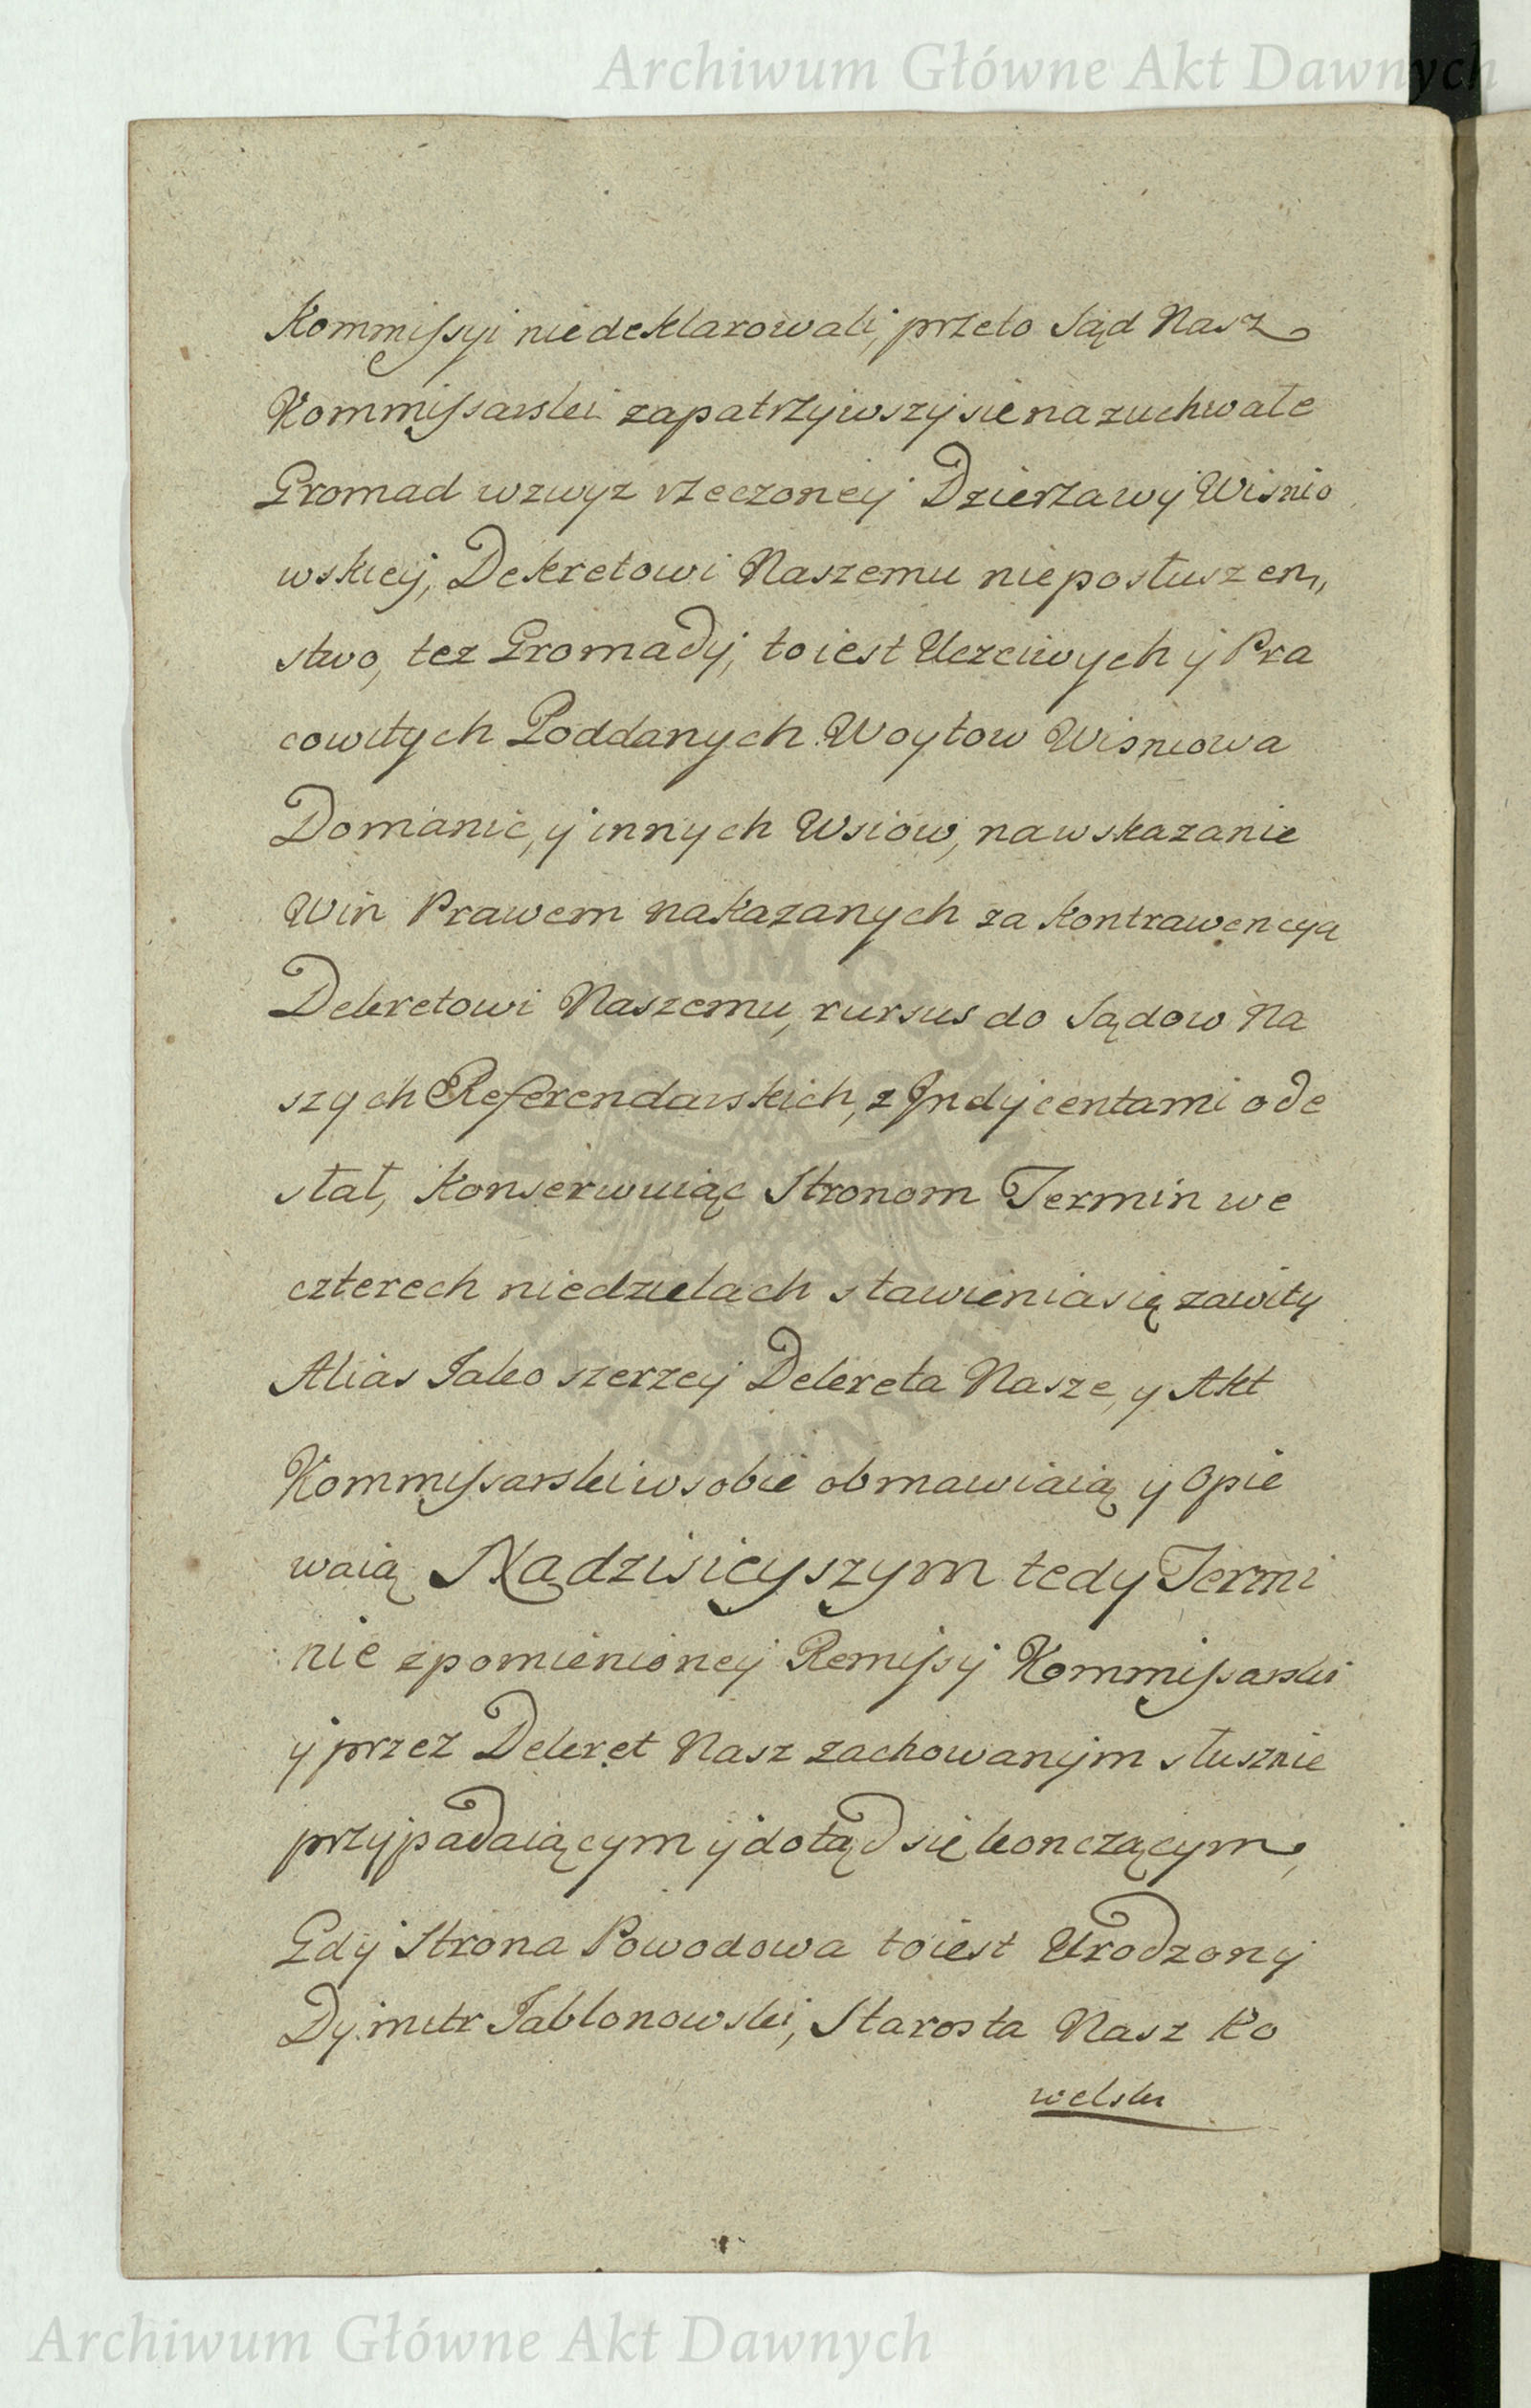 Archiwum Główne Akt Dawnych
Kommissyi niedeklarowali, przeto Sąd Nasz
Kommissarski zapatrzywszy sie na zuchwałe
Gromad wzwyż rzeczoney Dzierzawy Wisnio
wskiey, Dekretowi Naszemu nieposłuszen„
stwo, tez Gromady, to iest Uczciwych y Pra
cowitych Poddanych Woytow Wisniowa
Domanic, y innych Wsiow, na wskazanie
Win Prawem nakazanych za kontrawencya
Dekretowi Naszemu, rursus do Sądow Na
szych Referendarskich, z Indycentami ode
słał, konserwuiąc Stronom Termin we
czterech niedzielach stawienia się zawity
Alias Jako szerzey Dekreta Nasze, y Akt
Kommissarski w sobie obmawiaią y Opie
waią Na dzisieyszym tedy Termi
nie zpomienioney Remissy Kommissarski
y przez Dekret Nasz zachowanym słusznie
przypadaiącym y dotąd się konczącym,
Gdy Strona Powodowa to iest Urodzony
Dymitr Jabłonowski, Starosta Nasz Ko
welski
ARCHIWUM GŁÓWNE AKT DAWNYCH
Archiwum Główne Akt Dawnych